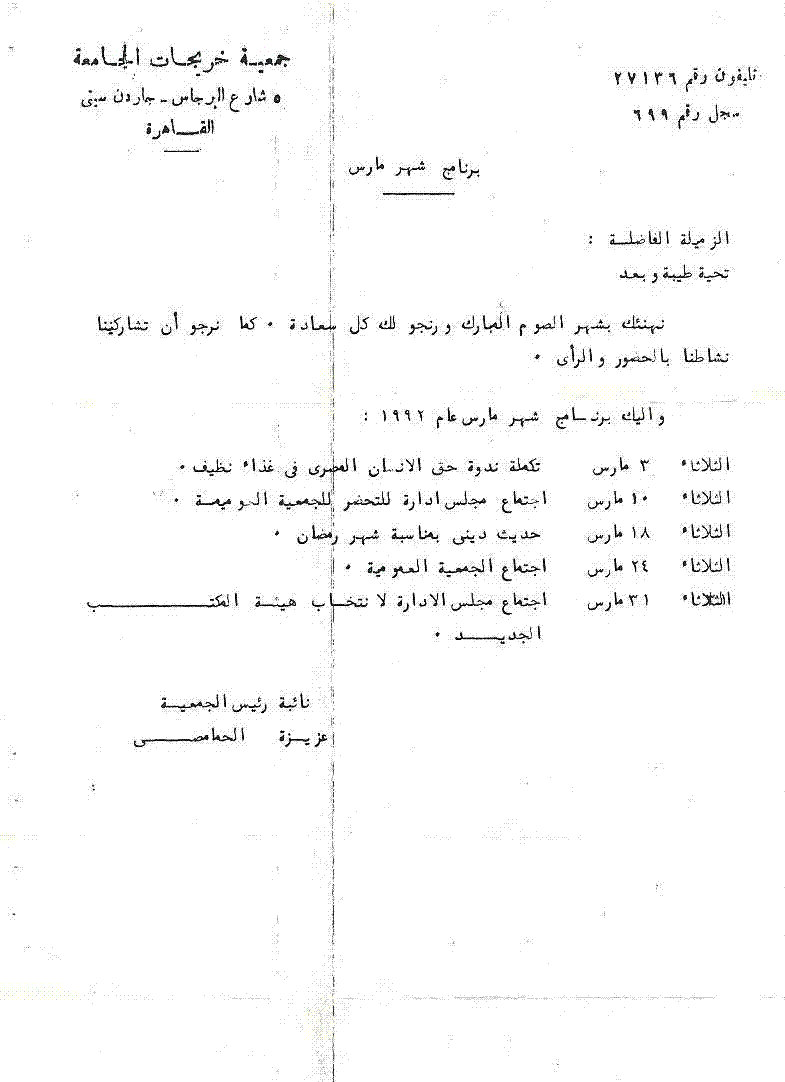 جمعية خريجات الجامعة
٥ شارع البرجاس - جاردن سيتى
القاهرة
تليفون رقم ٢٧١٣٦
سجل رقم ٦٩٩
برنامج شهر مارس
الزميلة الفاضلة :
تحية طيبة وبعد
نهنئك بشهر الصوم المبارك ورنجو لك كل سعادة ٠ كما نرجو أن تشاركينا
نشاطنا بالحضور والرأى ٠
واليك برنامج شهر مارس عام ١٩٩٢ :
الثلاثاء ٣ مارس تكملة ندوة حق الانسان المصرى فى غذاء نظيف ٠
الثلاثاء ١٠ مارس اجتماع مجلس ادارة للتحضر للجمعية العوميمة ٠
الثلاثاء ١٨ مارس حديث دينى بمناسبة شهر رمضان ٠
الثلاثاء ٢٤ مارس اجتماع الجمعية العمومية ٠
الثلاثاء ٣١ مارس اجتماع مجلس الادارة لانتخاب هيئة المكتب
الجديد ٠
نائبة رئيس الجمعية
عزيزة الحمامصى